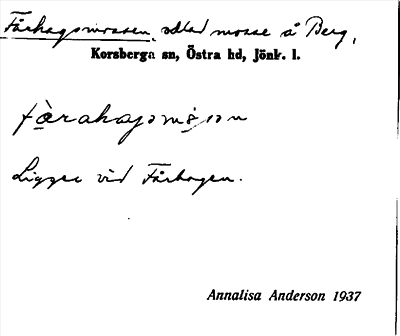 Fårhagsmossen, odlad mosse å Berg,
Korsberga sn, Östra hd, Jönk. l.
Ligger vid Fårhagen.
Annalisa Anderson 1937